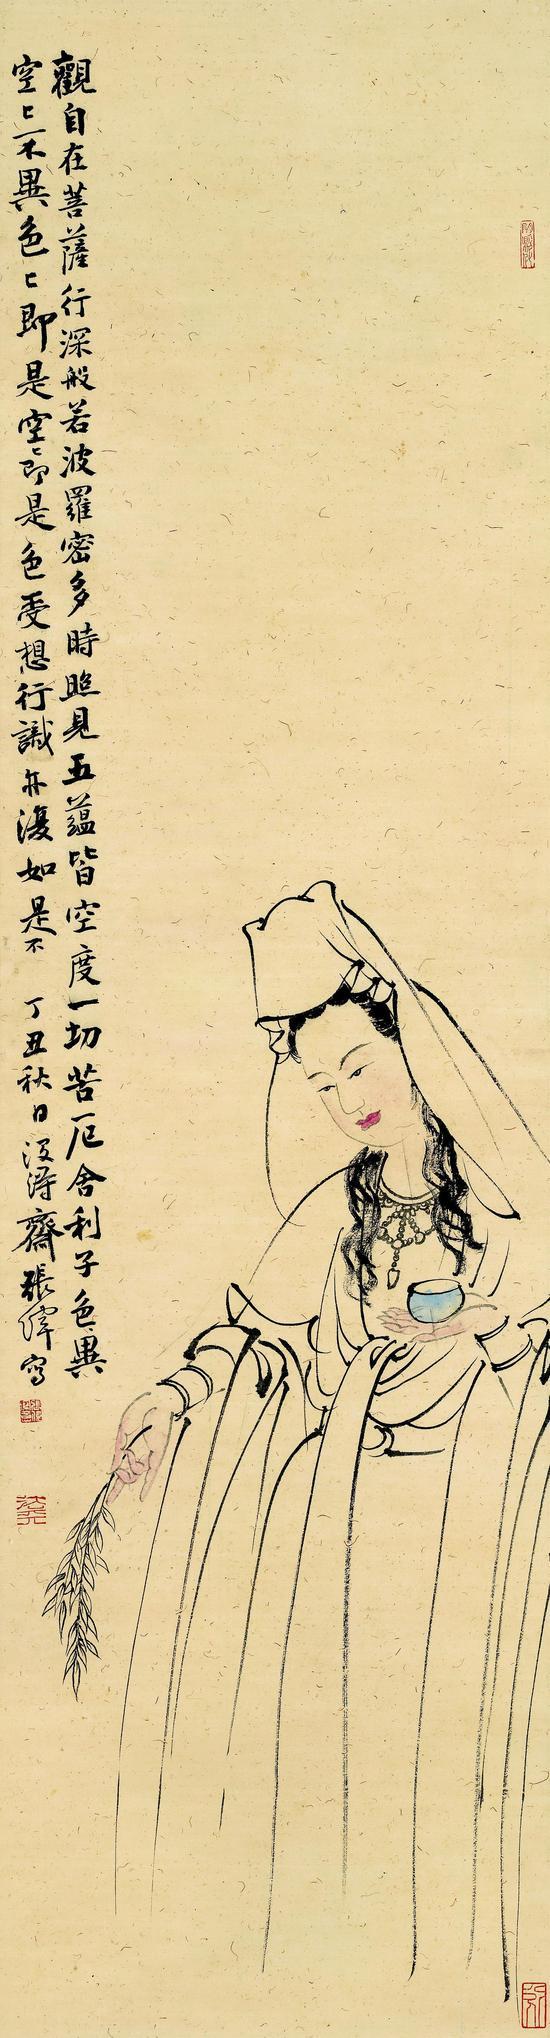 觀自在菩薩行深般若波羅密多時照見五蘊皆空度一切苦厄舍利子色異
空〻不異色〻即是空〻即是色受想行識亦復如是不 丁丑秋日 齋張偉寫